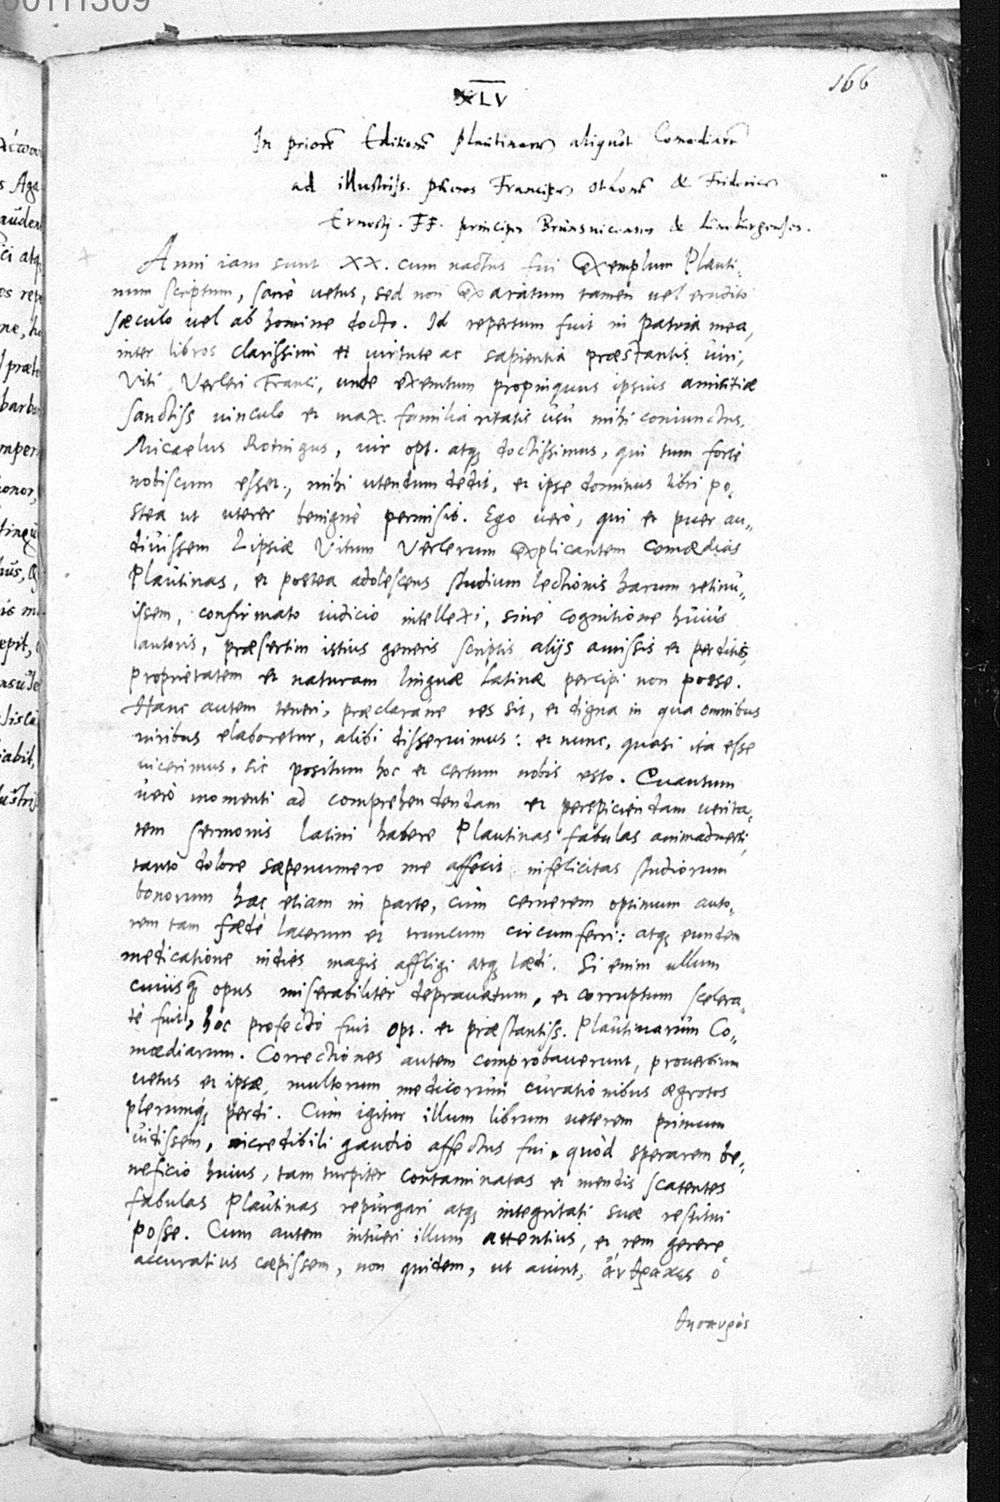 00111309
166
XLV
In priorē Editionē Plautinarum aliquot Comœdiarū
ad illustriss. pueros Franciscum Othonē & Fridericum
Ernesti. FF. principes Brunsuicenses & Lunęburgenses.
Anni iam sunt XX. cum nactus fui exemplum Plauti-
num scriptum, sanè uetus, sed non exaratum tamen uel erudito
sæculo uel ab homine docto. Id repertum fuit in patria mea,
inter libros clarissimi et uirtute ac sapientia præstantis uiri,
Viti Verleri Franci, unde exemtum propinquus ipsius amicitiæ
sanctiss uinculo et max. familiaritatis usu mihi coniunctus,
Micaelus Rotingus, uir opt. atq; doctissimus, qui tum fortè
nobiscum esset, mihi utendum dedit, et ipse dominus libri po-
stea ut uterer benignè permisit. Ego uerò, qui et puer au-
diuissem Lipsiæ Vitum Verlerum explicantem comœdias
Plautinas, et postea adolescens studium lectionis harum retinu-
issem, confirmato iudicio intellexi, sine cognitione huius
autoris, præsertim istius generis scriptis alijs amissis et perditis,
proprietatem et naturam linguæ latinæ percipi non posse.
Hanc autem teneri, præclarane res sit, et digna in qua omnibus
uiribus elaboretur, alibi disseruimus: et nunc, quasi ita esse
uicerimus, sic positum hoc et certum nobis esto. Quantum
uerò momenti ad comprehendendam et perspiciendam uerita-
tem sermonis latini habere Plautinas fabulas animaduerti,
tanto dolore sæpenumero me affecit infelicitas studiorum
bonorum hac etiam in parte, cùm cernerem optimum auto-
rem tam fœdè lacerum et truncum circumferri: atq; eundem
medicatione indies magis affligi atq; lædi. Si enim ullum
cuiusq̃ opus miserabiliter deprauatum, et corruptum scelera-
tè fuit, hoc profectò fuit opt. et præstantiss. Plautinarum Co-
mœdiarum. Correctiones autem comprobauerunt, prouerbium
uetus et ipsæ, multorum medicorum curationibus ægrotos
plerumq; perdi. Cùm igitur illum librum ueterem primum
uidissem, incredibili gaudio affectus fui, quòd sperarem be-
neficio huius, tam turpiter contaminatas et mendis scatentes
fabulas Plautinas repurgari atq; integritati suæ restitui
posse. Cum autem intueri illum attentius, et rem gerere
accuratius cœpissem, non quidem, ut aiunt, ἄνθρακες ὁ
θησαυρὸς